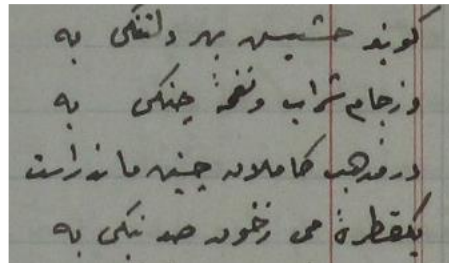 گویند حشیش بهر دلتنگی به
وز جام شراب و نغمهٔ چنگی به
در مذهب کاملان چنین مانده است
یکقطرهٔ می ز خون صد بنگی به